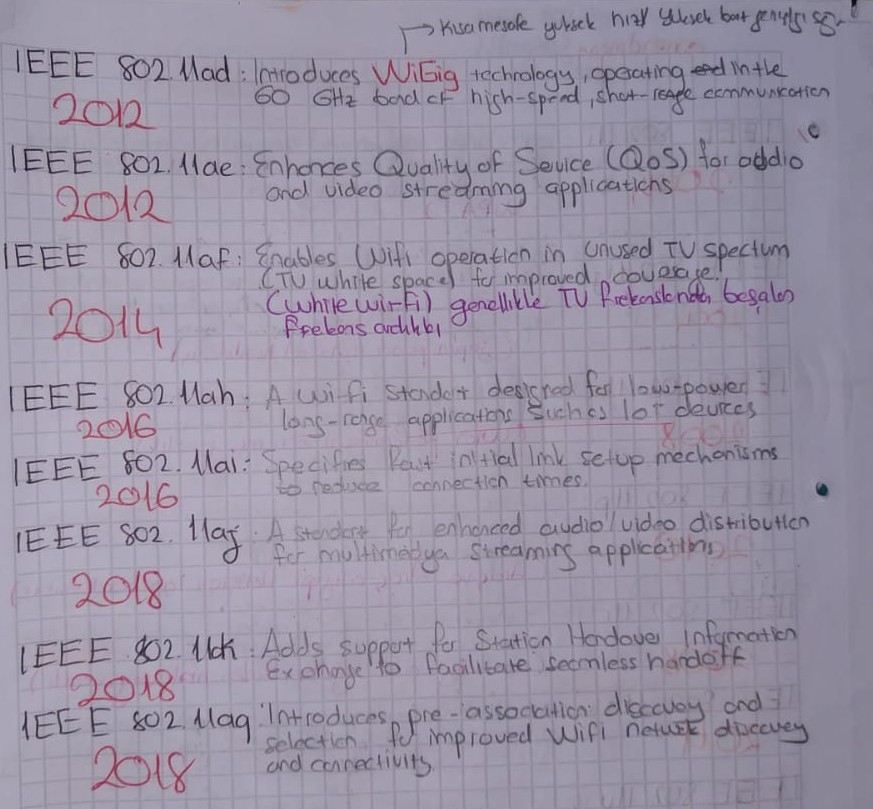 Kısa mesafe yüksek hızlı yüksek bant genişliği
IEEE 802.11ad : Introduces WiGig technology, operating end in the
2012 60 GHz band of high-speed, short-range communication
IEEE 802.11ae : Enhances Quality of Service (QoS) for addio
2012 and video streaming applications
IEEE 802.11af : Enables Wifi operation in Unused TV spectum
(TV white space) for improved coverage.
2014 (white wi-fi) genellikle TV frekanslarından boşalan
frekans
IEEE 802.11ah : A wi fi Standart designed for low-power
2016 long-range applications such as IoT devices
IEEE 802.11ai : Specifies Fast initial link setup mechanisms
2016 to reduce connection times.
IEEE 802.11aj . A standart for enhanced audio/video distribution
for multimedya streaming applications
2018
IEEE 802.11ak : Adds support for Station Handover Information
2018 Exchange to facilitate seamless handoff
IEEE 802.11aq : Introduces pre-association discovey and
selection for improved Wifi network discovey
2018 and connectivity